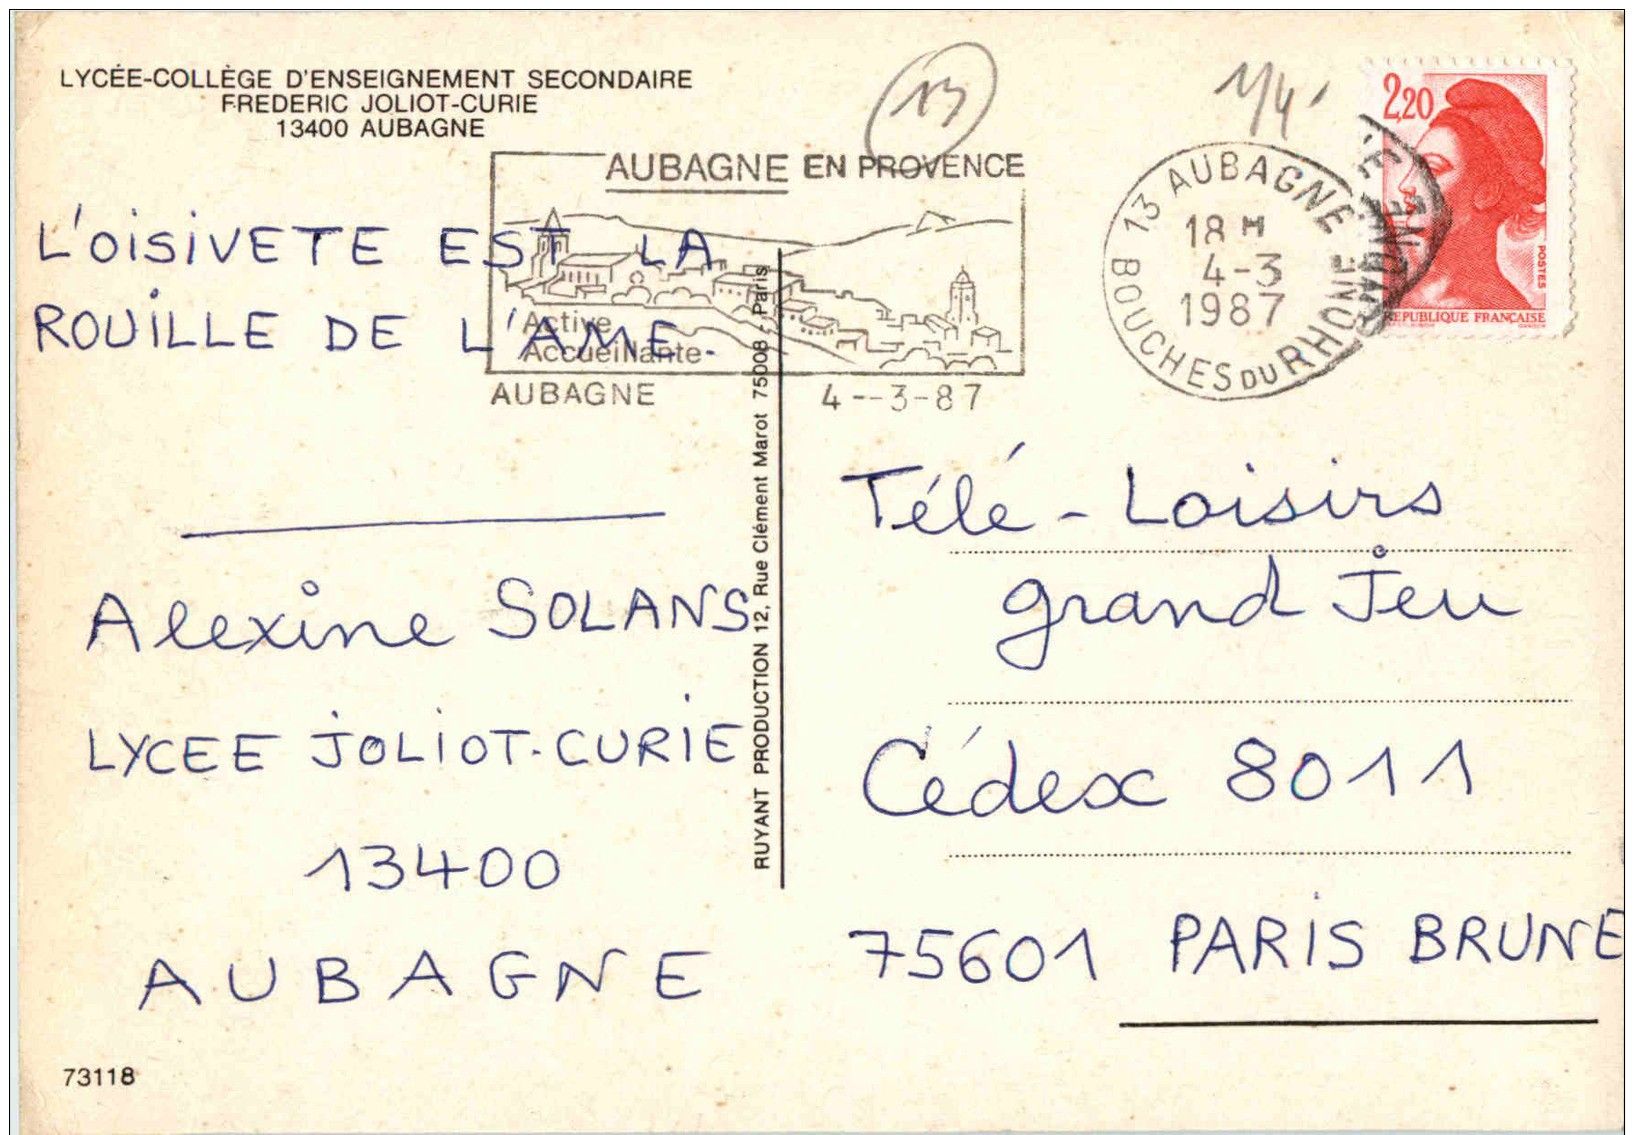 LYCÉE-COLLÈGE D'ENSEIGNEMENT SECONDAIRE
FREDERIC JOLIOT-CURIE
13400 AUBAGNE
13
1/4
2,20
POSTES
REPUBLIQUE FRANÇAISE
AUBAGNE EN PROVENCE
Active
Accueillante
AUBAGNE 4--3-87
13 AUBAGNE
18 H
4-3
1987
BOUCHES DU RHONE
L'OISIVETE EST LA
ROUILLE DE L'AME.
Alexine SOLANS
LYCEE JOLIOT-CURIE
13400
AUBAGNE
RUYANT PRODUCTION 12, Rue Clément Marot 75008 - Paris
Télé-Loisirs
grand Jeu
Cédex 8011
75601 PARIS BRUNE
73118